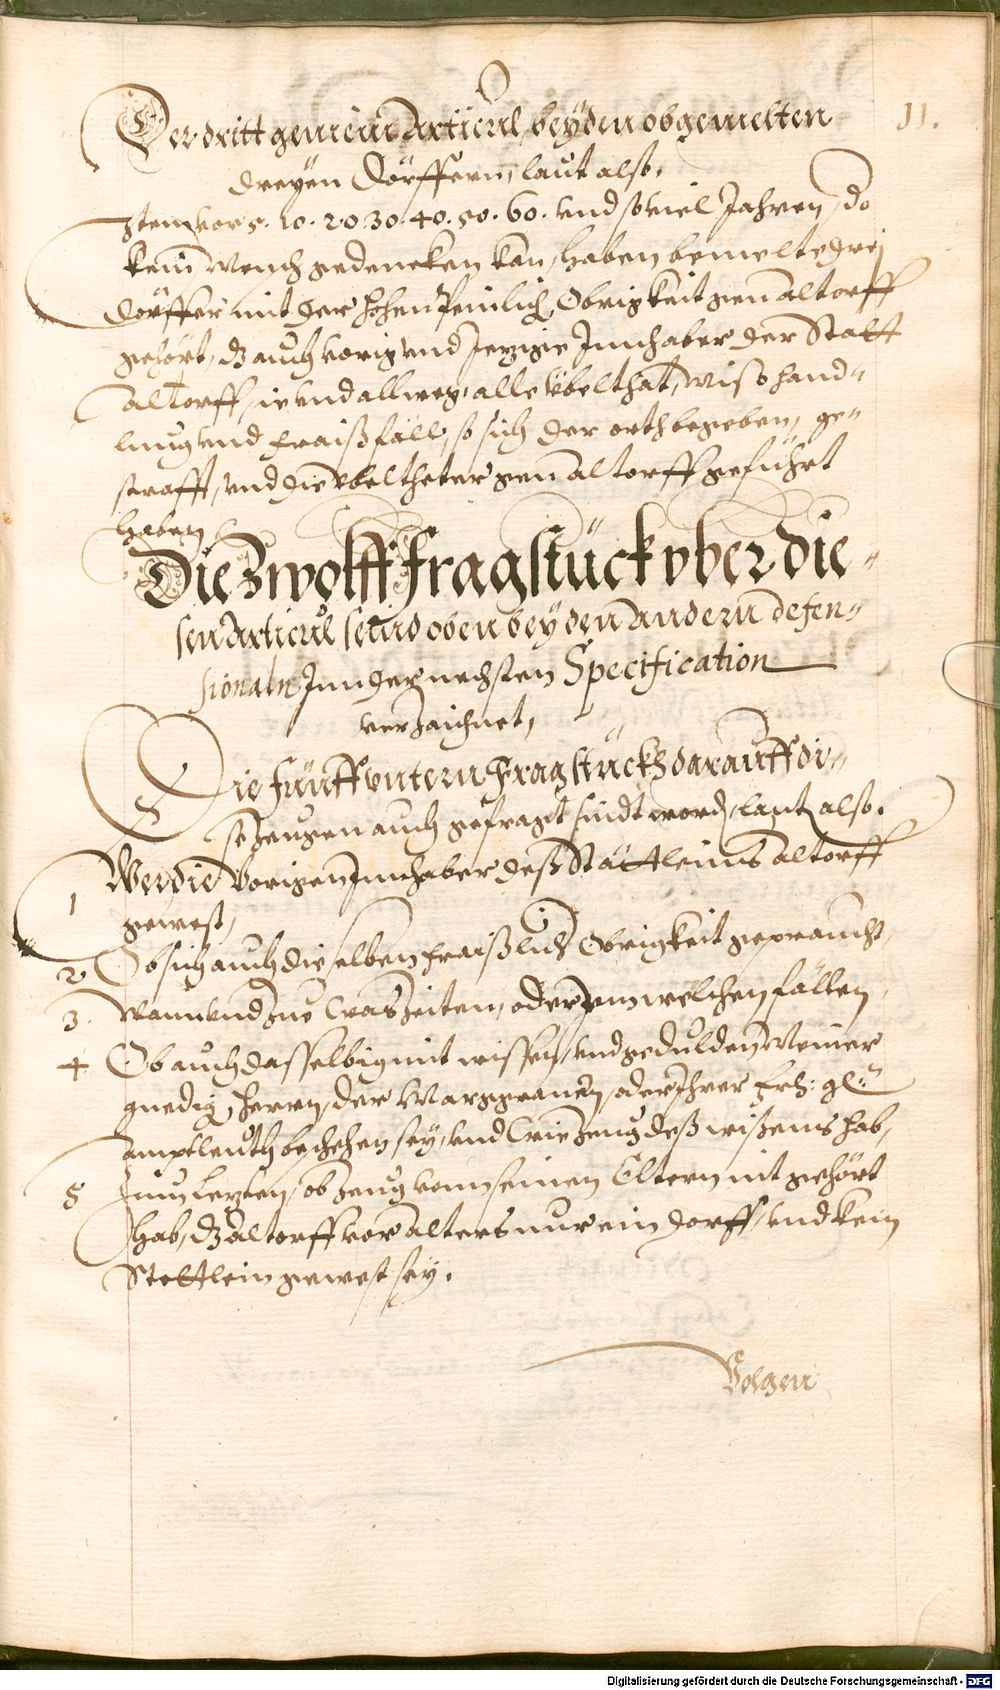 11.
Der dritt gemein Articul, bey den obgemelten
dreyen Dörffern, laut also,
Item vor 5. 10. 20. 30. 40. 50. 60. vnd soviel Jahren, do
kein Mensch gedencken kan, haben bemelte drej
dörffer mit der hohen Peinlich Obrigkeit gen Altorff
gehört, dz auch vorig vnd Jezige Innhaber der Statt
Altorff, ie vnd allweg, alle Übelthat, misshand=
lung vnd Fraißfäll, so sich der orth begeben, ge=
strafft, vnd die Übeltheter gen Altorff geführt
haben
Die Zwolff Fragstück vber die=
sen Articul seind oben bey den andern defen=
sionaln Inn der nechsten Specification
verzaichnet,
Die fünff vntern Fragstuckh darauff di=
se zeugen auch gefragt sindt word, lautt also.
1 Wer die Vorigen Innhaber deß Stättleins Altorff
gewest,
2 Ob sich auch dieselben fraißlich Obrigkeit gepraucht,
3. Wann vnd zue was Zeiten, oder Inn welchen fällen
4 Ob auch dasselbig mit wissen, vnd gedulden Meiner
gnedig, Herrn, der Marggrauen, oder Ihrer Frl: gl:
Amptleuth beschehen sey, vnd wie Zeug deß wißens hab,
5 Zum Lezten, ob Zeug vonn seinen Eltern nit gehört
hab, dz Altorff vor alters nur ein dorff, vnd kein
Stettlein gewest sey.
Volgen
Digitalisierung gefördert durch die Deutsche Forschungsgemeinschaft - DFG